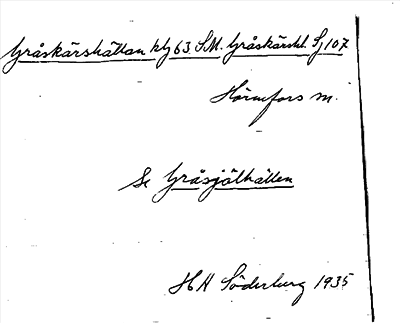 Gråskärshällan klj 63 SM. Gråskärshl. Sj 107
Hörnefors m.
Se Gråsjälhällen
HH Söderburg 1935